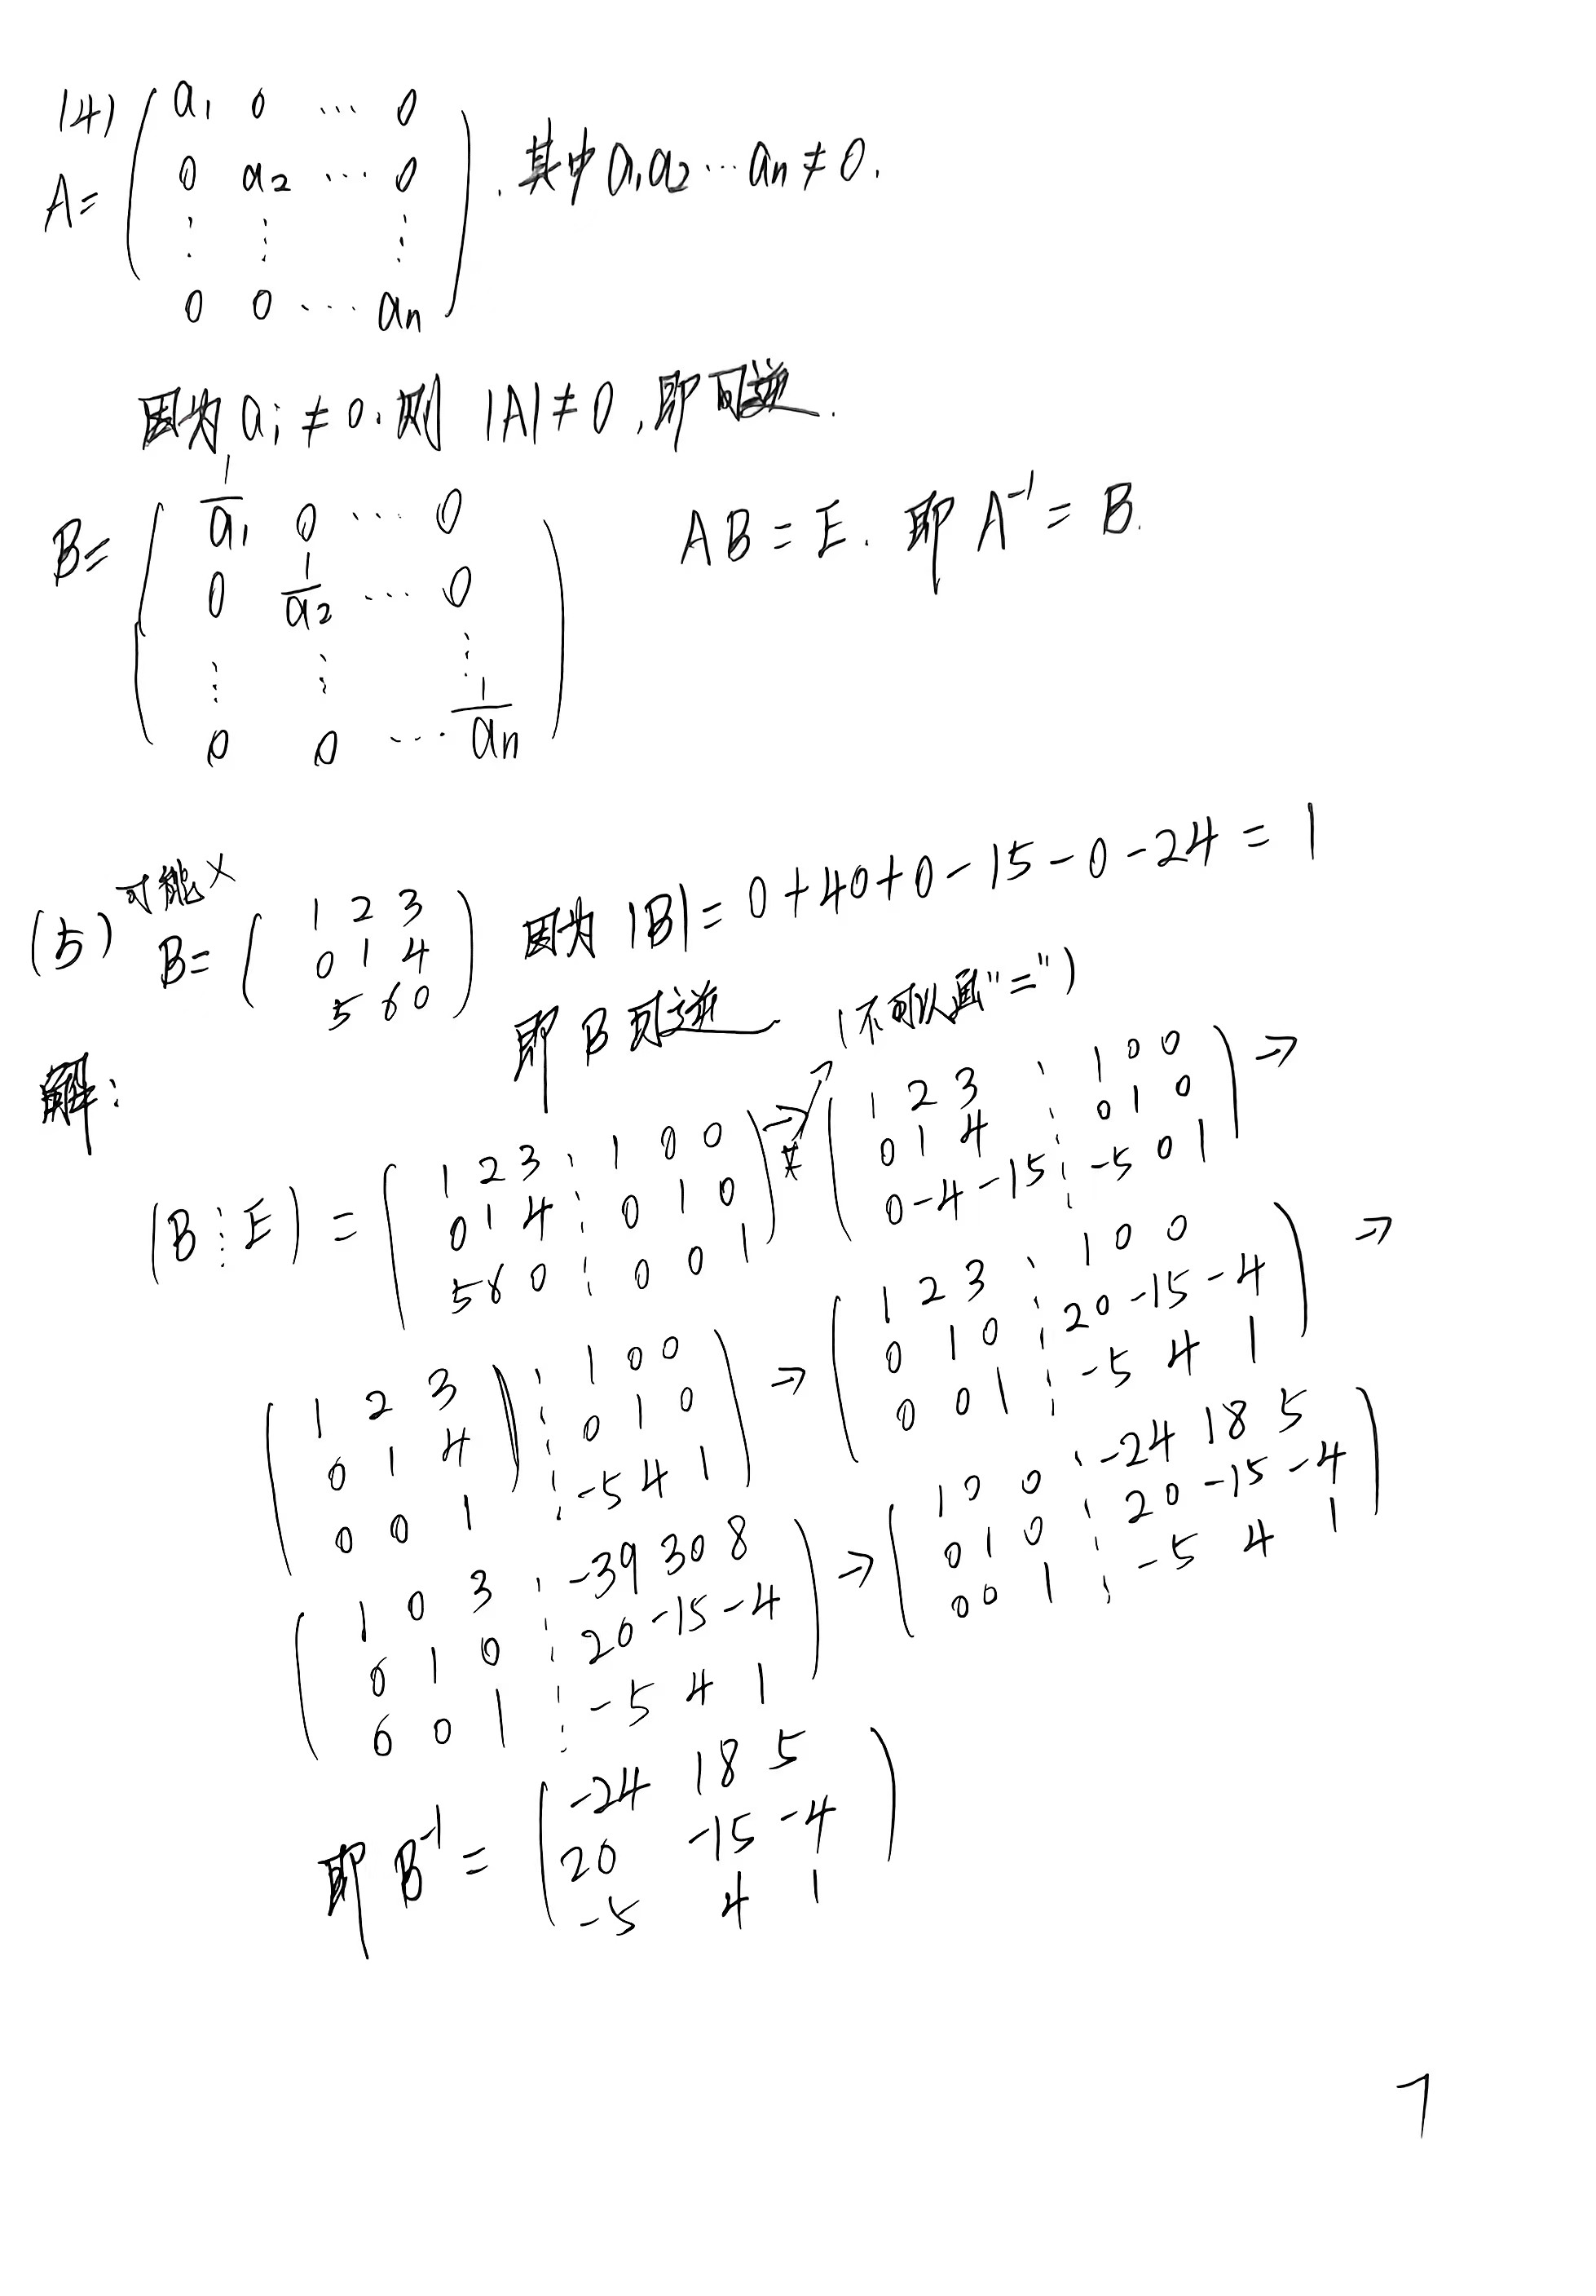 (4)
A= ( a₁ 0 … 0
0 a₂ … 0
⋮ ⋮ ⋮
0 0 … aₙ ) . 其中a₁a₂…aₙ≠0.
因为aᵢ≠0.则 |A|≠0,即可逆.
B= ( 1/a₁ 0 … 0
0 1/a₂ … 0
⋮ ⋮ ⋮
0 0 … 1/aₙ )
AB=E. 即A⁻¹=B.
可能×
(5) B= ( 1 2 3
0 1 4
5 6 0 )
因为 |B|=0+40+0-15-0-24=1
即B可逆
(不可以画"=")
解:
(B⋮E) = ( 1 2 3 ⋮ 1 0 0
0 1 4 ⋮ 0 1 0
5 6 0 ⋮ 0 0 1 ) → ≠
( 1 2 3 ⋮ 1 0 0
0 1 4 ⋮ 0 1 0
0 -4 -15 ⋮ -5 0 1 ) →
( 1 2 3 ⋮ 1 0 0
0 1 4 ⋮ 0 1 0
0 0 1 ⋮ -5 4 1 ) →
( 1 2 3 ⋮ 1 0 0
0 1 0 ⋮ 20 -15 -4
0 0 1 ⋮ -5 4 1 ) →
( 1 0 3 ⋮ -39 30 8
0 1 0 ⋮ 20 -15 -4
0 0 1 ⋮ -5 4 1 ) →
( 1 0 0 ⋮ -24 18 5
0 1 0 ⋮ 20 -15 -4
0 0 1 ⋮ -5 4 1 )
即 B⁻¹ = ( -24 18 5
20 -15 -4
-5 4 1 )
7